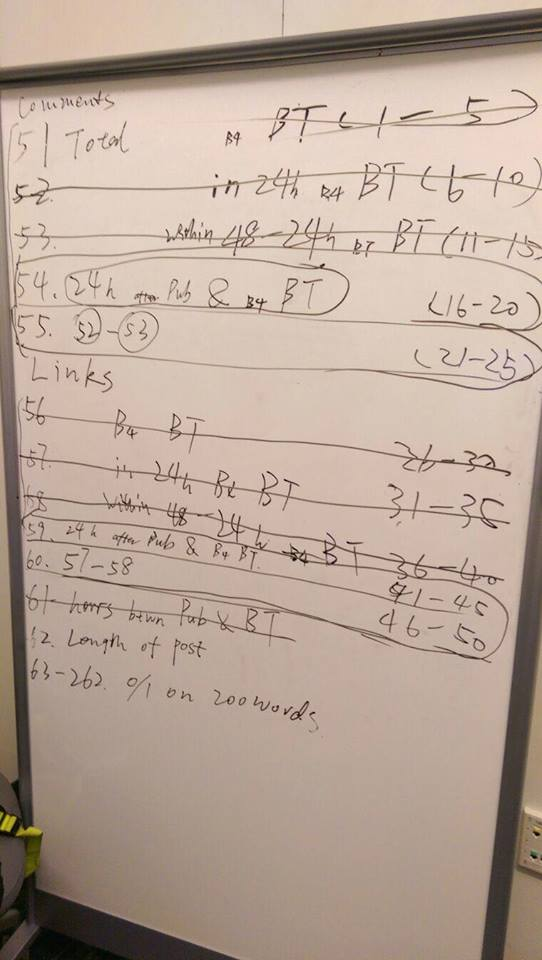 Comments
51 Total B4 BT (1-5)
52. in 24h B4 BT (6-10)
53. within 48-24h BT BT (11-15
54. 24h after Pub & B4 BT (16-20)
55. 52-53 (21-25)
Links
56 B4 BT 26-30
57. in 24h B4 BT 31-35
58 within 48-24h B4 BT 36-40
59. 24h after Pub & B4 BT 41-45
60. 57-58 46-50
61- hours btwn Pub & BT
62. Length of post
63-262. 0/1 on 200 words